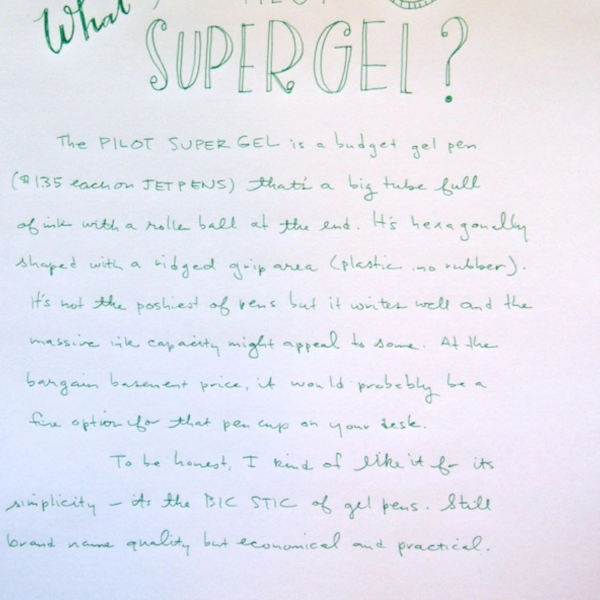 What
PILOT
SUPER GEL?
The PILOT SUPER GEL is a budget gel pen
($1.35 each on JETPENS) that's a big tube full
of ink with a roller ball at the end. It's hexagonally
shaped with a ridged grip area (plastic, no rubber).
It's not the poshiest of pens but it writes well and the
massive ink capacity might appeal to some. At the
bargain basement price, it would probably be a
fine option for that pen cup on your desk.
To be honest, I kind of like it for its
simplicity – its the BIC STIC of gel pens. Still
brand name quality but economical and practical.